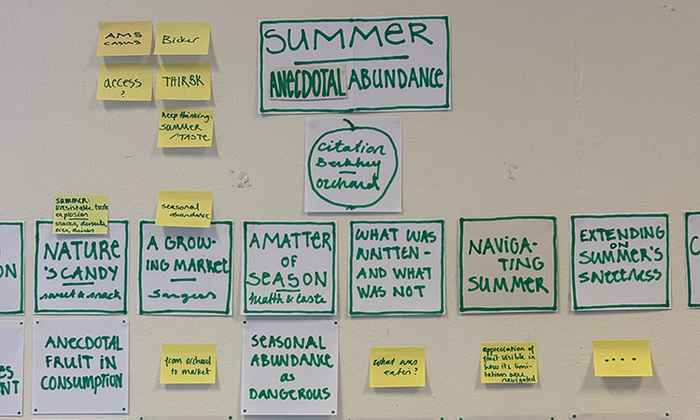 SUMMER
ANECDOTAL ABUNDANCE
AMS
Bicker
access
?
THIRSK
keep thinking:
SUMMER
/TASTE
citation
Berkhey
orchard
summer:
explosion
seasonal
abundance
ON
NATURE
'S CANDY
sweet & snack
A GROW-
ING MARKET
A MATTER
OF
SEASON
Health & taste
WHAT WAS
WRITTEN -
AND WHAT
WAS NOT
NAVIGA-
TING
SUMMER
EXTENDING
ON
SUMMER'S
SWEETNESS
C
ES
ENT
ANECDOTAL
FRUIT IN
CONSUMPTION
from orchard to
market
SEASONAL
ABUNDANCE
as
DANGEROUS
what was
eaten?
appreciation of
fruit visible in
how its limi-
tations were
navigated
....